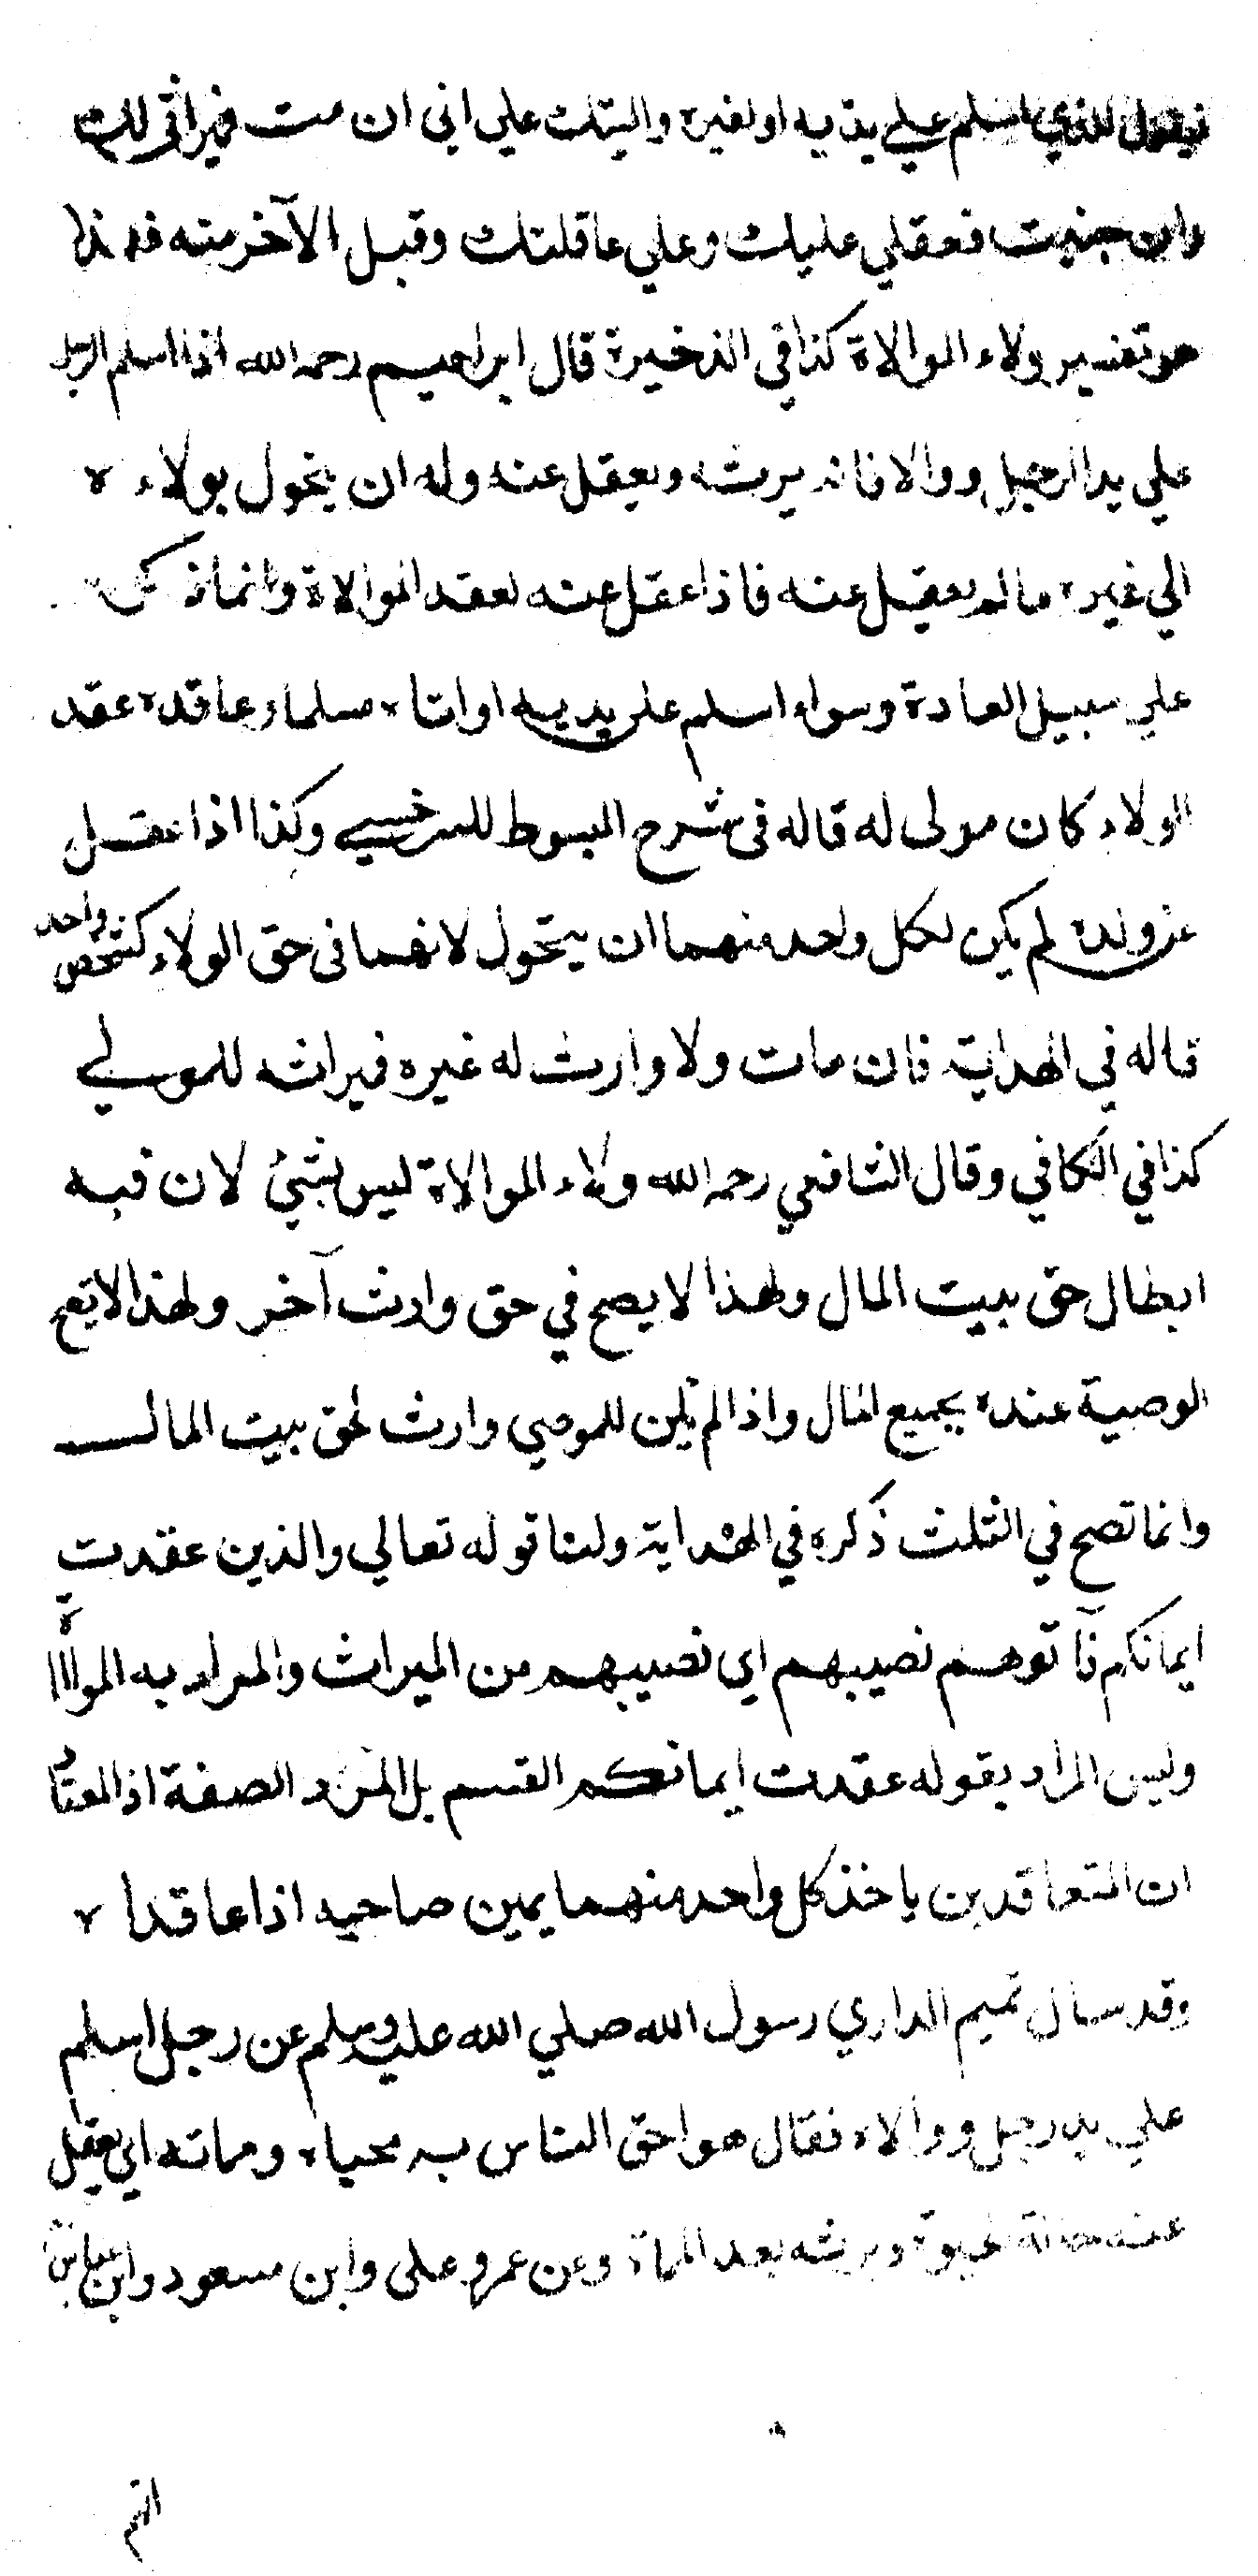 فيقول للذي اسلم علي يديه او لغيره واليتك علي اني ان مت فميراثي لك
وان جنيت فعقلي عليك وعلي عاقلتك وقبل الآخر منه فهذا
هو تفسير ولاء الموالاة كذا في الذخيرة قال ابراهيم رحمه الله اذا اسلم الرجل
علي يد الرجل ووالاه فانه يرثه ويعقل عنه وله ان يتحول بولاء ه
الي غيره مالم يعقل عنه فاذا عقل عنه لعقد الموالاة وانما ذكر
علي سبيل العادة وسواء اسلم على يديه او اتاه مسلما وعاقده عقد
الولاء كان مولى له قاله في شرح المبسوط للسرخسي وكذا اذا عقل
عن ولده لم يكن لكل واحد منهما ان يتحول لانهما في حق الولاء كشخص واحد
قاله في الهداية فان مات ولا وارث له غيره فميراثه للمولي
كذا في الكافي وقال الشافعي رحمه الله ولاء الموالاة ليس بشئ لان فيه
ابطال حق بيت المال ولهذا لا يصح في حق وارث آخر ولهذا لا تصح
الوصية عنده بجميع المال واذا لم يكن للموصي وارث لحق بيت المال
وانما تصح في الثلث ذكره في الهداية ولنا قوله تعالي والذين عقدت
ايمانكم فآتوهم نصيبهم اي نصيبهم من الميراث والمراد به الموالاة
وليس المراد بقوله عقدت ايمانكم القسم بل المراد الصفقة اذ المعتاد
ان المتعاقدين ياخذ كل واحد منهما يمين صاحبه اذا عاقدا
وقد سال تميم الداري رسول الله صلي الله عليه وسلم عن رجل اسلم
علي يد رجل ووالاه فقال هو احق الناس به محياه ومماته اي يعقل
عنه حالة الحيوة ويرثه بعد المماة وعن عمر وعلى وابن مسعود وابن عباس
انهم